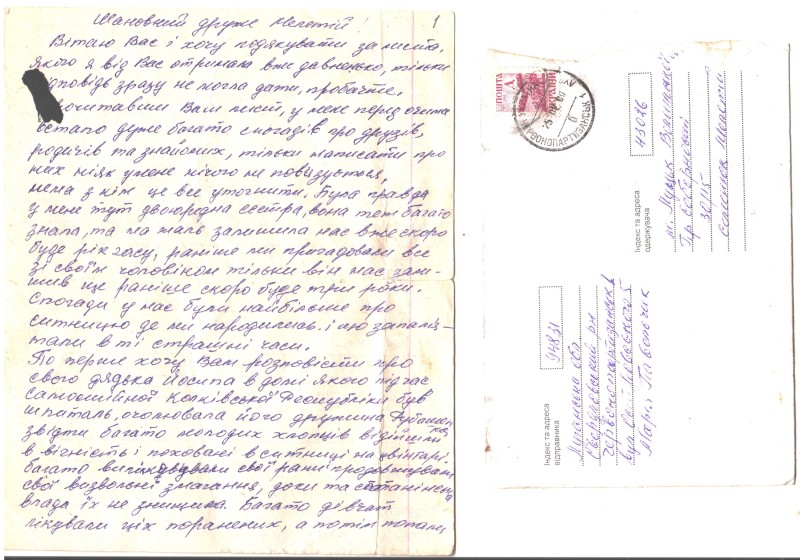 1
Шановний друже Мелетій!
Вітаю Вас і хочу подякувати за листа,
якого я від Вас отримала вже давненько, тільки
відповідь зразу не могла дати, пробачте.
Прочитавши Ваш лист, у мене перед очима
встало дуже багато спогадів про друзів,
родичів та знайомих, тільки написати про
них ніяк у мене нічого не повязується,
нема з ким це все уточнити. Була правда
у мене тут двоюродна сестра, вона теж багато
знала, та на жаль залишила нас вже скоро
буде рік часу, раніше ми пригадовали все
зі своїм чоловіком тільки він нас зали-
шив ще раніше скоро буде три роки.
Спогади у нас були найбільше про
ситницю де ми народились і що запаміт-
тали в ті страшні часи.
По перше хочу Вам розповісти про
свого дядька Йосипа в домі якого під час
самостійної Колківської Республіки був
шпиталь, очолювала його дружина
звідти багато молодих хлопців відійшли
в вічність і поховані в ситниці на цвинтарі.
багато вилікувували свої рани продовжували
свої визвольні змагання, доки та сталінська
влада їх не знищила. Багато дівчат
лікували цих поранених, а потім попали
ПОШТА
УКРАЇНИ
ЧЕРВОНОПАРТИЗАНСЬК
Індекс та адреса
відправника
94831
Луганська обл
Свердловський рн
Червонопартизанськ
вул
Марія
Індекс та адреса
одержувача
43026
м. Луцьк Волинської
Пр Соборності
Семенюк Мелетій